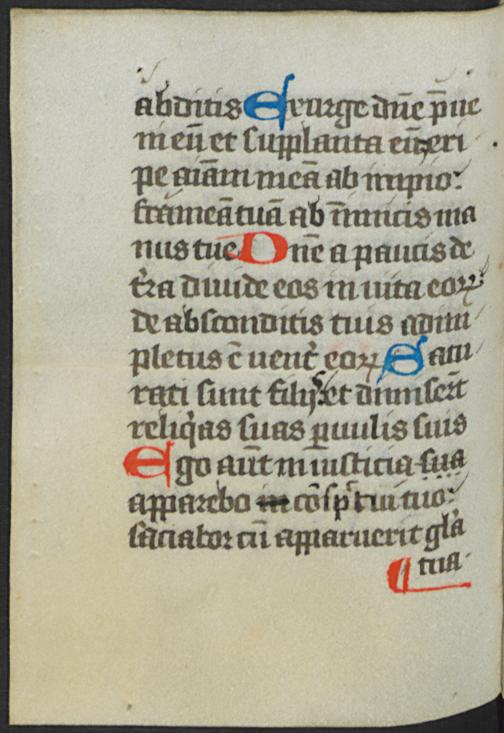 abditis Exurge dn̄e p̄ue
ni eū et supplanta eū eri
pe aīam meā ab impio:
frameā tuā ab īmicis ma
nus tue Dn̄e a paucis de
t̄ra diuide eos in uita eoꝝ:
de absconditis tuis adim
pletus ē uent̄ eoꝝ Satu
rati sunt filijs et dimiser̄t
reliq̄as suas ꝑuulis suis
Ego aūt in iusticia sua
apparebo in cōsp̄tui tuo:
saciabor cū apparuerit gl̄a
tua